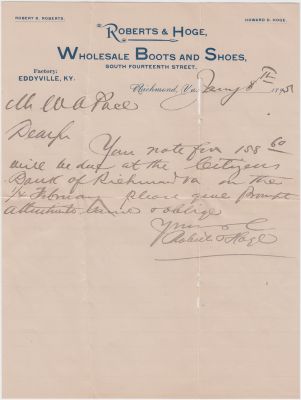 ROBERT R. ROBERTS.
HOWARD D. HOGE.
ROBERTS & HOGE,
WHOLESALE BOOTS AND SHOES,
SOUTH FOURTEENTH STREET.
Factory:
EDDYVILLE, KY.
Richmond, Va. Jany 8th 1895
Mr W A Pace
Dear Sir
Your note for 188 60
will be due at the Citizens
Bank of Richmond Va on the
1/4 February please give prompt
attention to same & oblige
Yours &c
Roberts & Hoge